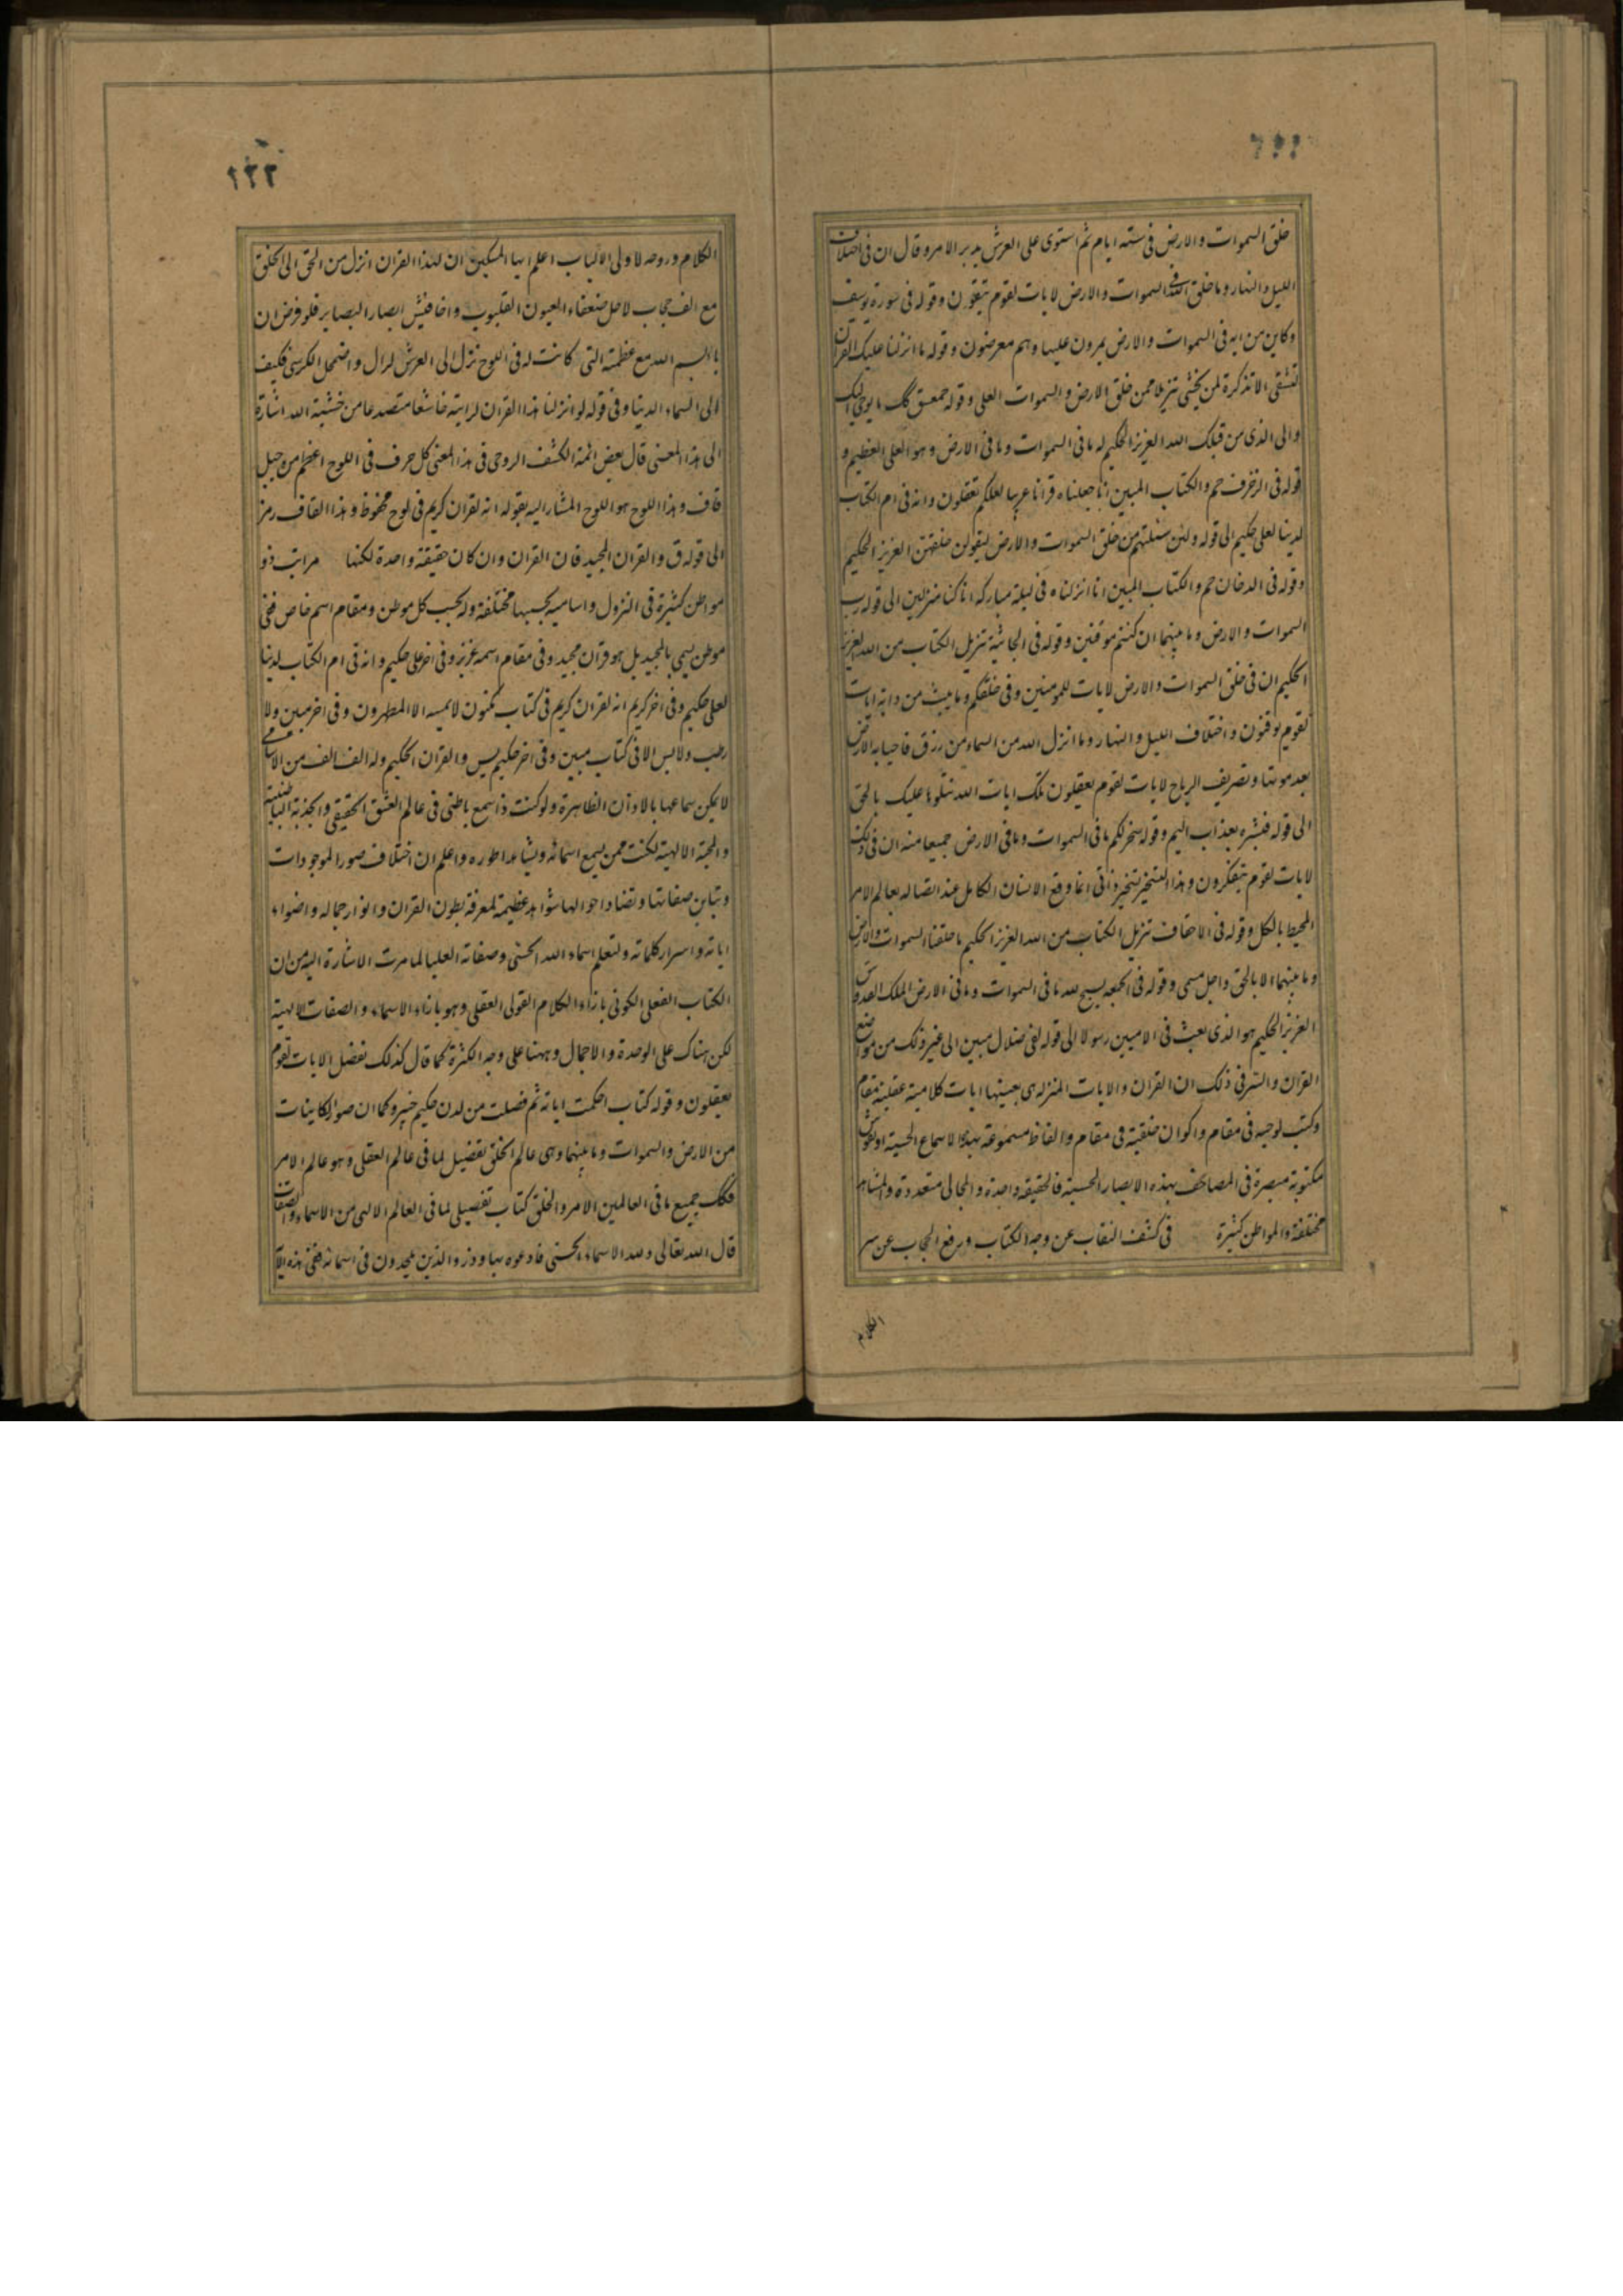 خلق السموات والارض فی ستة ایام ثم استوی علی العرش یدبر الامر وقال ان فی اختلاف
اللیل والنهار وما خلق الله فی السموات والارض لایات لقوم یتقون وقوله فی سورة یوسف
وکاین من ایه فی السموات والارض یمرون علیها وهم معرضون وقوله ما انزلنا علیک القران
لتشقی الا تذکرة لمن یخشی تنزیلا ممن خلق الارض والسموات العلی وقوله حمعسق کک یوحی الیک
والی الذی من قبلک الله العزیز الحکیم له ما فی السموات وما فی الارض وهو العلی العظیم و
قوله فی الزخرف حم والکتاب المبین انا جعلناه قرانا عربیا لعلکم تعقلون وانه فی ام الکتاب
لدینا لعلی حکیم الی قوله ولئن سئلتهم من خلق السموات والارض لیقولن خلقهن العزیز الحکیم
وقوله فی الدخان حم والکتاب المبین انا انزلناه فی لیلة مبارکه انا کنا منزلین الی قوله رب
السموات والارض وما بینهما ان کنتم موقنین وقوله فی الجاثیة تنزیل الکتاب من الله العزیز
الحکیم ان فی خلق السموات والارض لایات للمومنین وفی خلقکم وما یبث من دابه ایات
لقوم یوقنون واختلاف اللیل والنهار وما انزل الله من السماء من رزق فاحیا به الارض
بعد موتها وتصریف الریاح لایات لقوم یعقلون تلک ایات الله نتلوها علیک بالحق
الی قوله فبشره بعذاب الیم وقوله سخر لکم ما فی السموات وما فی الارض جمیعا منه ان فی ذلک
لایات لقوم یتفکرون وهذا التسخیر تسخیر ذاتی انما وقع الانسان الکامل عند اتصاله بعالم الامر
المحیط بالکل وقوله فی الاحقاف تنزیل الکتاب من الله العزیز الحکیم ما خلقنا السموات والارض
وما بینهما الا بالحق واجل مسمی وقوله فی الجمعه یسبح لله ما فی السموات وما فی الارض الملک القدوس
العزیز الحکیم هو الذی بعث فی الامیین رسولا الی قوله لفی ضلال مبین الی غیر ذلک من مواضع
القران والسر فی ذلک ان القران والایات المنزله هی بعینها ایات کلامیة عقلیة مقام
وکتب لوحیه فی مقام واکوان خلقیة فی مقام والفاظ مسموعة بهذا الاسماع الحسیة او نقوش
مکتوبة مبصرة فی المصاحف بهذه الابصار الحسیة فالحقیقة واحدة والمجالی متعددة والمشاهد
مختلفة والمواطن کثیرة فی کشف النقاب عن وجه الکتاب ورفع الحجاب عن سر
الکلام
١٢٢
الکلام وروحه لاولی الالباب اعلم ایها المسکین ان هذا القران انزل من الحق الی الخلق
مع الف حجاب لاجل ضعفاء العیون القلوب واخافیش ابصار البصایر فلو فرض ان
باء بسم الله مع عظمته التی کانت له فی اللوح نزل الی العرش لزال واضمحل الکرسی فکیف
الی السماء الدنیا وفی قوله لو انزلنا هذا القران لرایته خاشعا متصدعا من خشیة الله اشارة
الی هذا المعنی قال بعض ائمة الکشف الروحی فی هذا المعنی کل حرف فی اللوح اعظم من جبل
قاف وهذا اللوح هو اللوح المشار الیه بقوله انه لقران کریم فی لوح محفوظ وهذا القاف رمز
الی قوله ق والقران المجید فان القران وان کان حقیقة واحدة لکنها مراتب ذو
مواطن کثیرة فی النزول واسامیه بحسبها مختلفة وله بحسب کل موطن ومقام اسم خاص ففی
موطن یسمی بالمجید بل هو قران مجید وفی مقام اسمه عزیز وفی اخر علی حکیم وانه فی ام الکتاب لدینا
لعلی حکیم وفی اخر کریم انه لقران کریم فی کتاب مکنون لا یمسه الا المطهرون وفی اخر مبین ولا
رطب ولا یابس الا فی کتاب مبین وفی اخر حکیم یس والقران الحکیم وله الف الف من الاسامی
لا یمکن سماعها بالاوذان الظاهرة ولو کنت ذا سمع باطنی فی عالم العشق الحقیقی والجذبة الباطنیة
والمحبة الالهیة لکنت ممن یسمع اسمائه ویشاهد اطوره واعلم ان اختلاف صور الموجودات
وتباین صفاتها وتضاد احوالها شواهد عظیمة لمعرفة بطون القران وانوار جماله واضواء
ایاته واسرار کلماته ولتعلم اسماء الله الحسنی وصفاته العلیا لما مرت الاشارة الیه من ان
الکتاب الفعلی الکونی بازاء الکلام القولی العقلی وهو بازاء الاسماء والصفات الالهیة
لکن هناک علی الوحدة والاجمال وههنا علی وجه الکثرة کما قال کذلک نفصل الایات لقوم
یعقلون وقوله کتاب احکمت ایاته ثم فصلت من لدن حکیم خبیر وکما ان صور الکاینات
من الارض والسموات وما بینهما وهی عالم الخلق تفصیل لما فی عالم العقلی وهو عالم الامر
فکک جمیع ما فی العالمین الامر والخلق کتاب تفصیلی لما فی العالم الالهی من الاسماء والصفات
قال الله تعالی ولله الاسماء الحسنی فادعوه بها وذروا الذین یلحدون فی اسمائه ففی هذه الآ